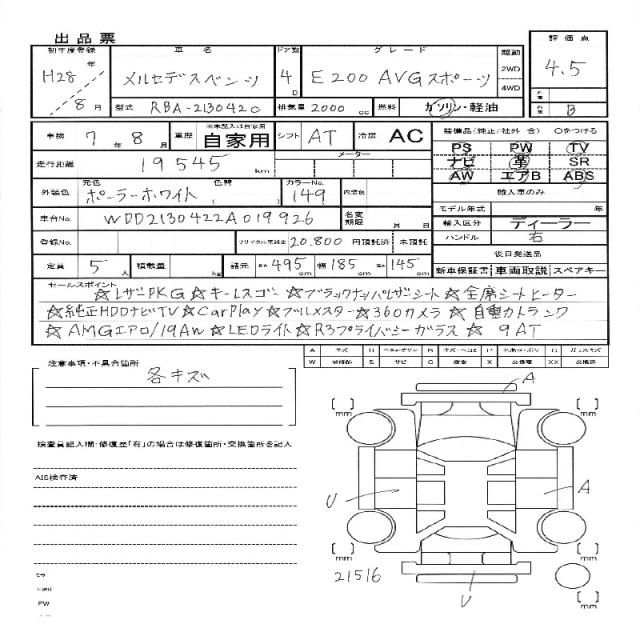 出品票
初年度登録 車名 ドア数 グレード 駆動 評価点
H28年 8月 メルセデスベンツ 4D E200 AVGスポーツ 2WD 4WD 4.5
型式 RBA-213042C 排気量 2000 cc 燃料 ガソリン・軽油 B
車検 7年8月 車歴 ※未記入は自家用 自家用 シフト AT 冷房 AC
装備品(純正/社外 含) ○をつける
PS PW TV
ナビ 革 SR
AW エアB ABS
走行距離 19545 km メーター
輸入車のみ
外装色 元色 ポーラーホワイト 色替 カラーNo. 149 内装色
モデル年式 年
車台No. WDD2130422A019926 名変期限 月 日
輸入区分 ディーラー
ハンドル 右
登録No. リサイクル預託金 20.800 円預託済 未預託
後日発送品
定員 5人 積載量 kg 諸元 長さ 495cm 幅 185cm 高さ 145cm
新車保証書 車両取説 スペアキー
セールスポイント
☆レザPKG ☆キーレスゴー ☆ブラックナッパレザーシート ☆全席シートヒーター
☆純正HDDナビTV ☆CarPlay ☆ブルメスター ☆360カメラ ☆自動カトランク
☆AMGエアロ/19AW ☆LEDライト ☆R3プライバシーガラス ☆9AT
注意事項・不具合箇所
各キズ
検査員記入欄・修復歴「有」の場合は修復箇所・交換箇所を記入
AIS検査済
A
mm mm
U A
mm mm
21516
U
PW
mm